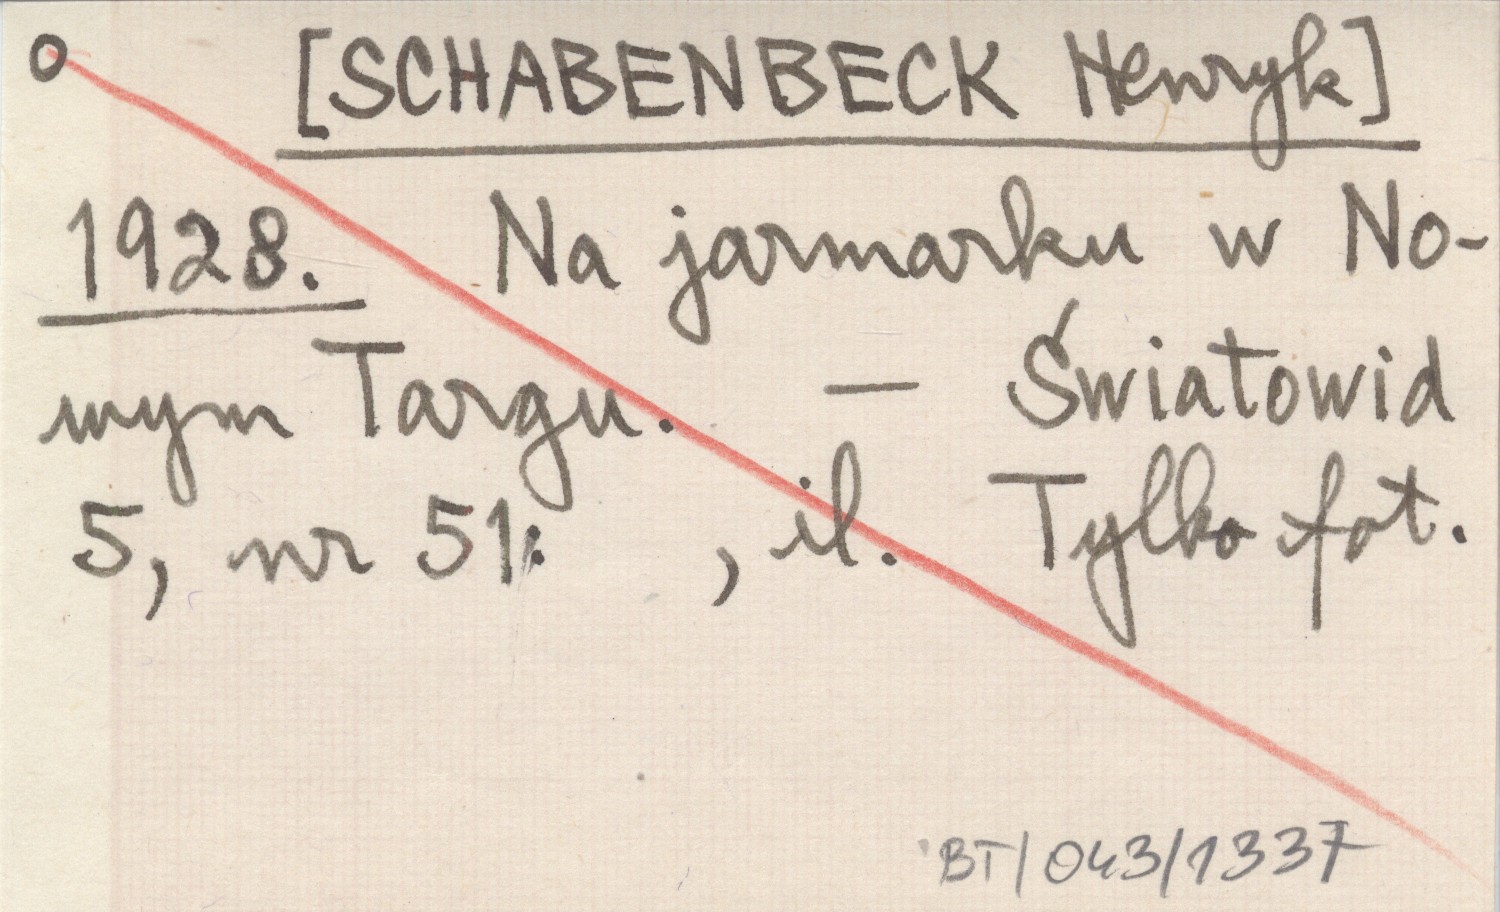 o [SCHABENBECK Henryk]
1928. Na jarmarku w No-
wym Targu. — Światowid
5, nr 51: , il. Tylko fot.
BT/043/1337